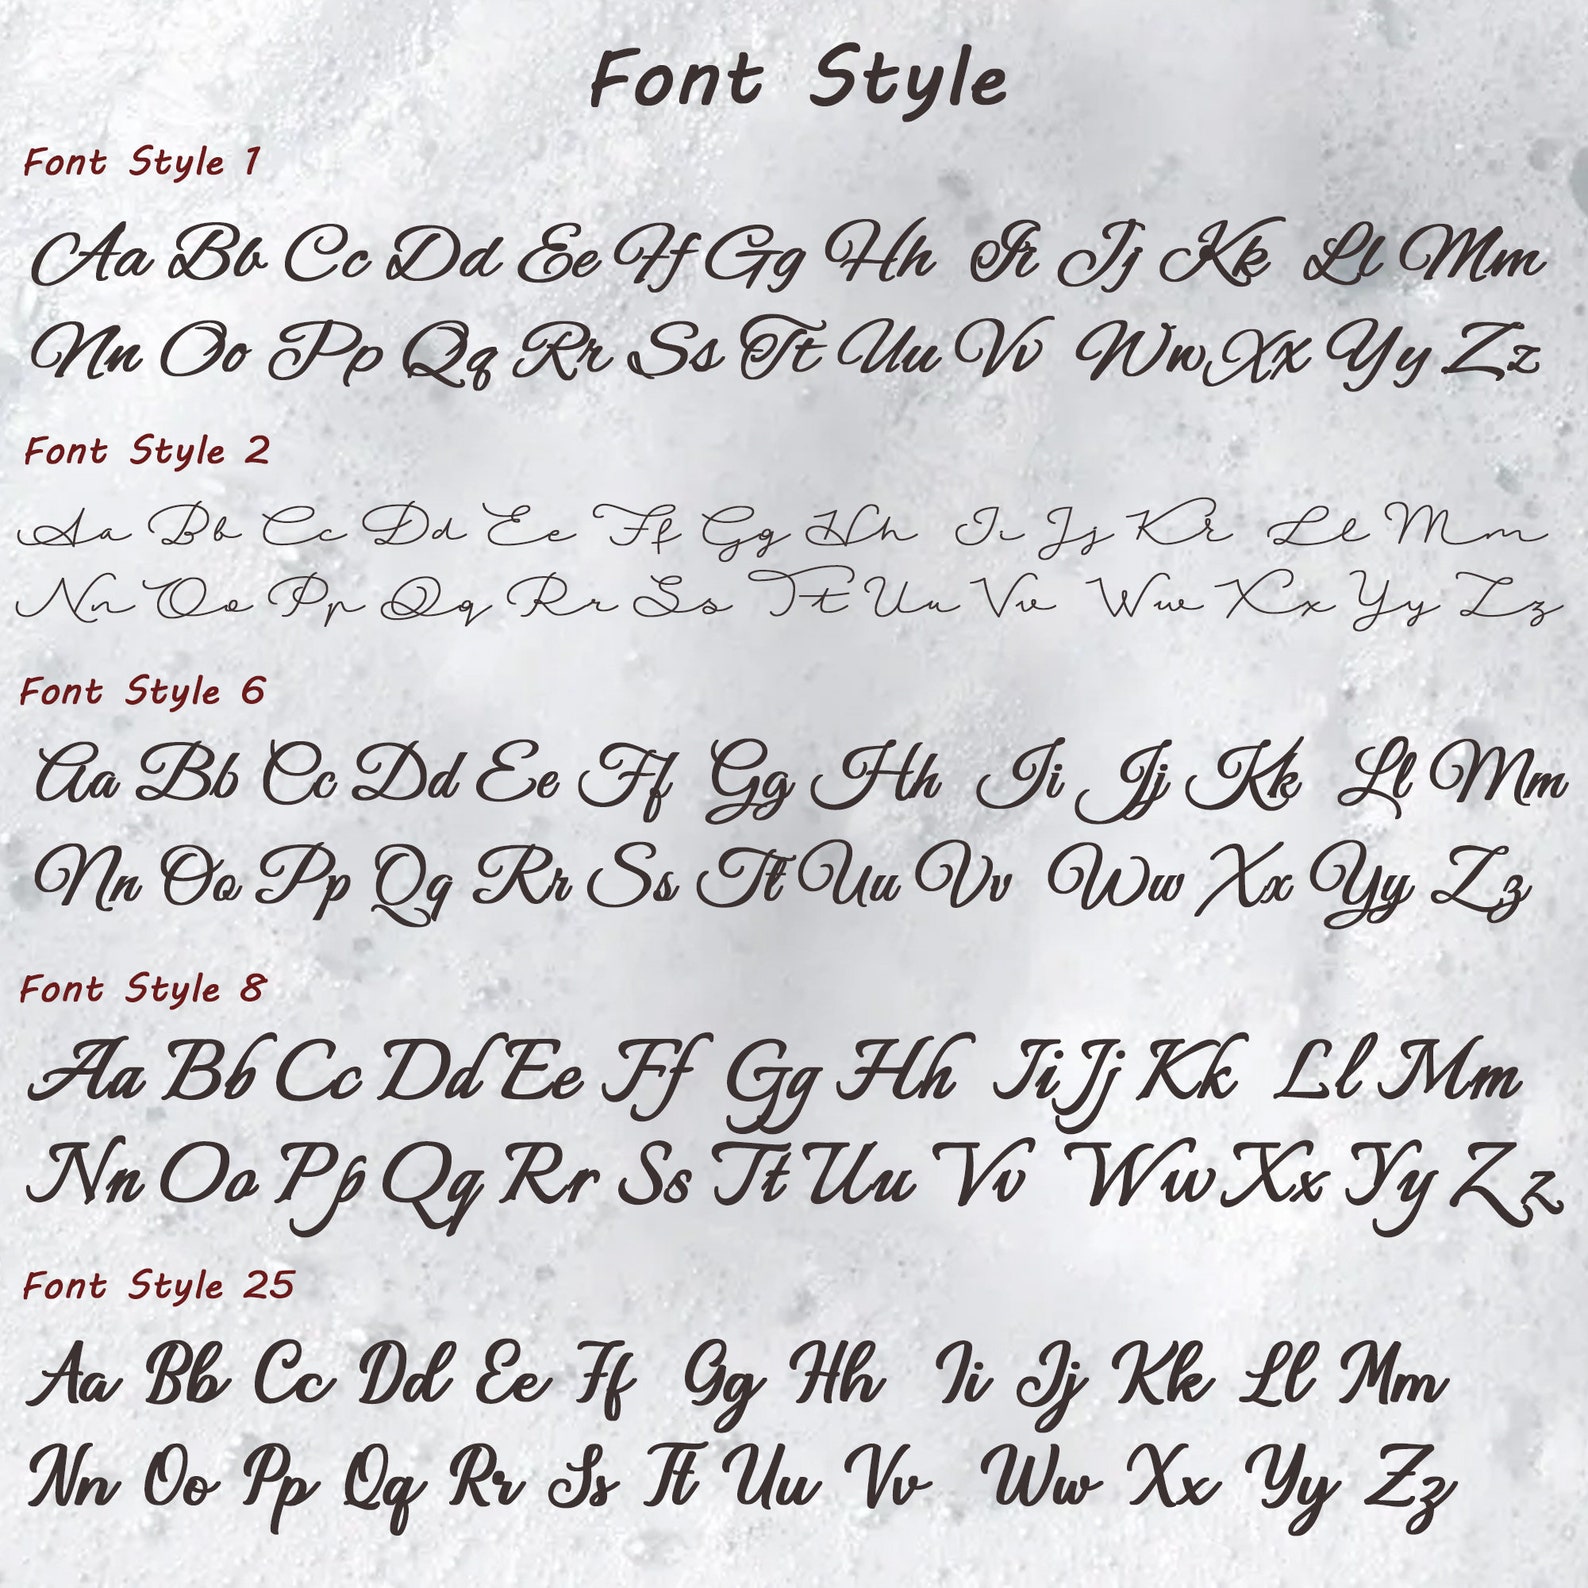 Font Style
Font Style 1
Aa Bb Cc Dd Ee Ff Gg Hh Ii Jj Kk Ll Mm
Nn Oo Pp Qq Rr Ss Tt Uu Vv Ww Xx Yy Zz
Font Style 2
Aa Bb Cc Dd Ee Ff Gg Hh Ii Jj Kk Ll Mm
Nn Oo Pp Qq Rr Ss Tt Uu Vv Ww Xx Yy Zz
Font Style 6
Aa Bb Cc Dd Ee Ff Gg Hh Ii Jj Kk Ll Mm
Nn Oo Pp Qq Rr Ss Tt Uu Vv Ww Xx Yy Zz
Font Style 8
Aa Bb Cc Dd Ee Ff Gg Hh Ii Jj Kk Ll Mm
Nn Oo Pp Qq Rr Ss Tt Uu Vv Ww Xx Yy Zz
Font Style 25
Aa Bb Cc Dd Ee Ff Gg Hh Ii Jj Kk Ll Mm
Nn Oo Pp Qq Rr Ss Tt Uu Vv Ww Xx Yy Zz